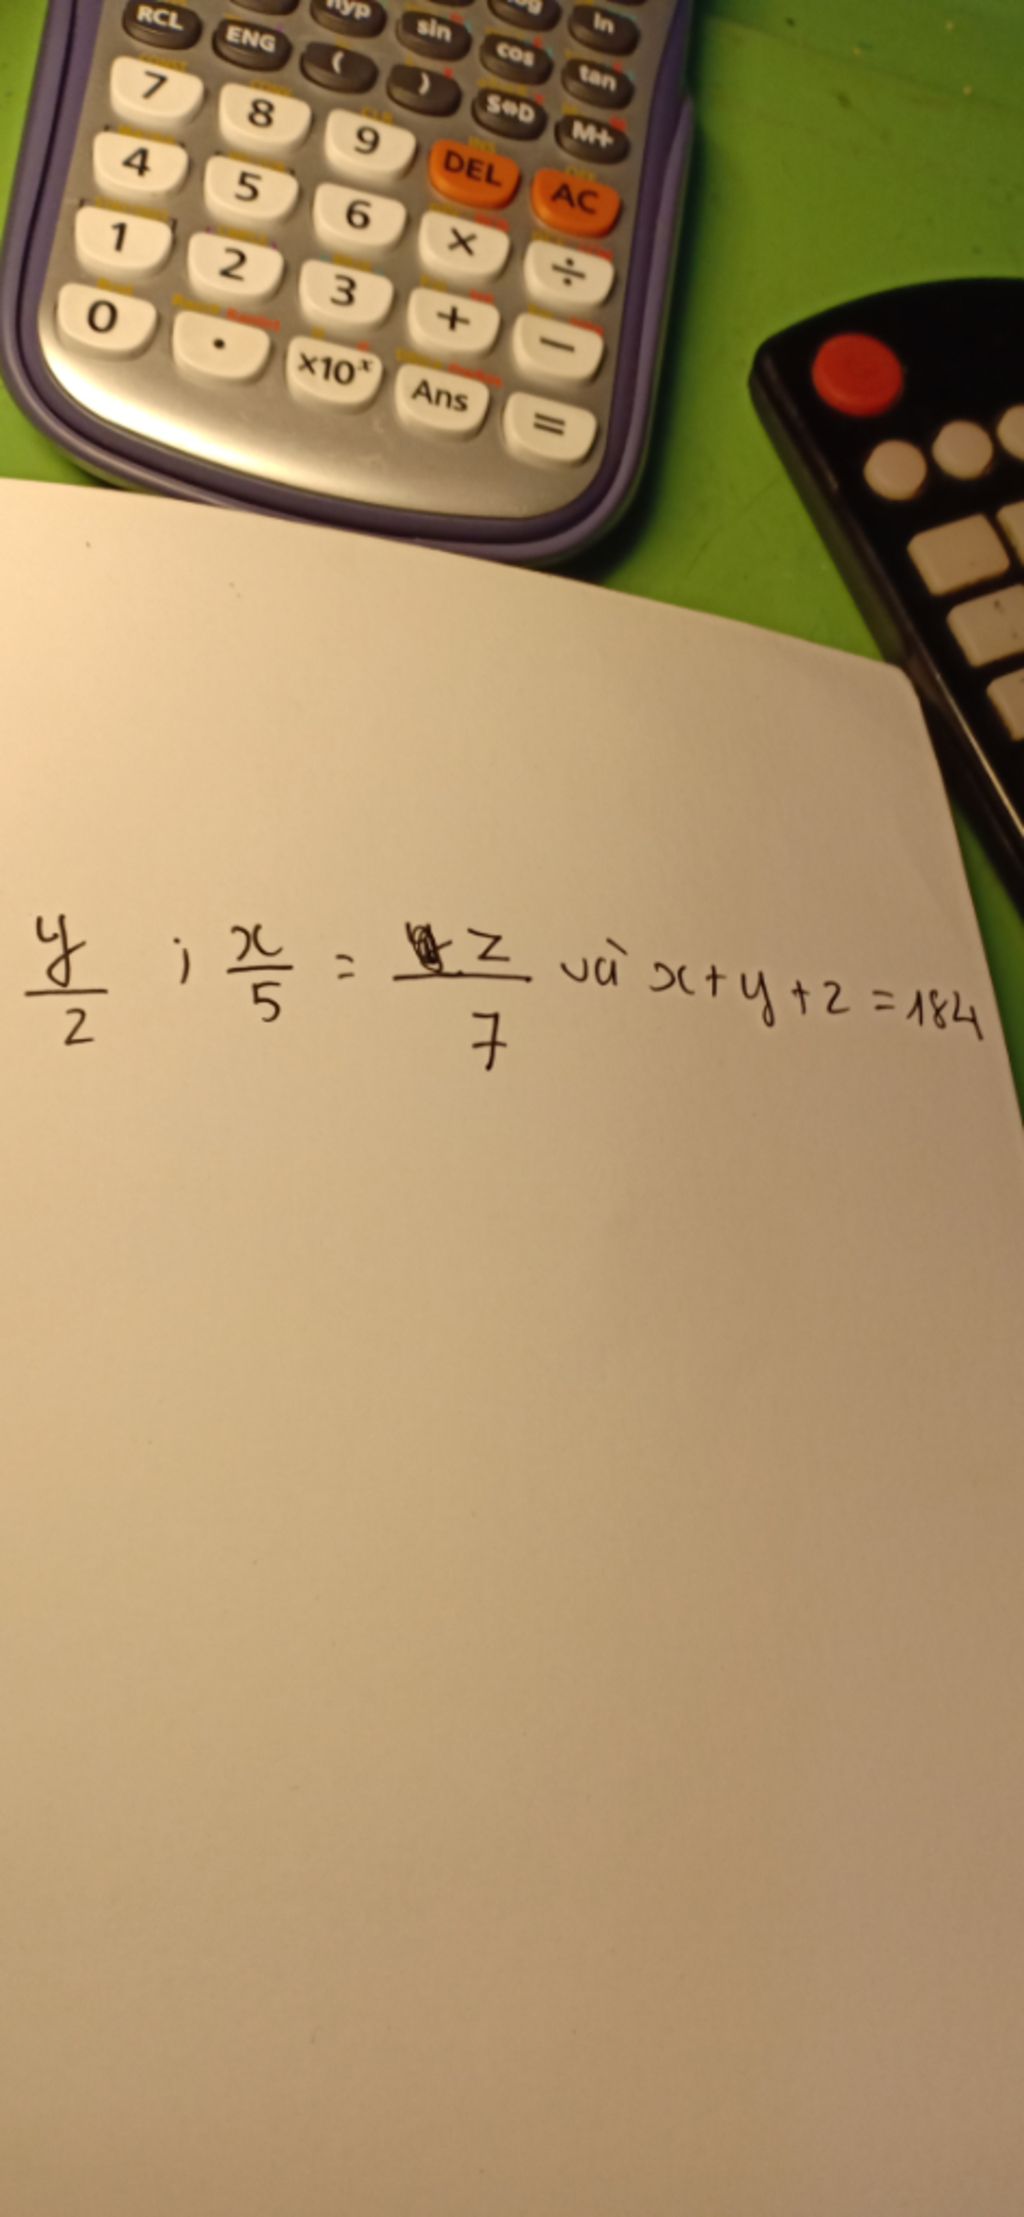 hyp
ln
RCL
ENG
(
)
sin
cos
tan
S⇔D
M+
7 8 9 DEL AC
4 5 6 × ÷
1 2 3 + −
0 . ×10ˣ Ans =
y/2 ; x/5 = z/7 và x+y+z = 184